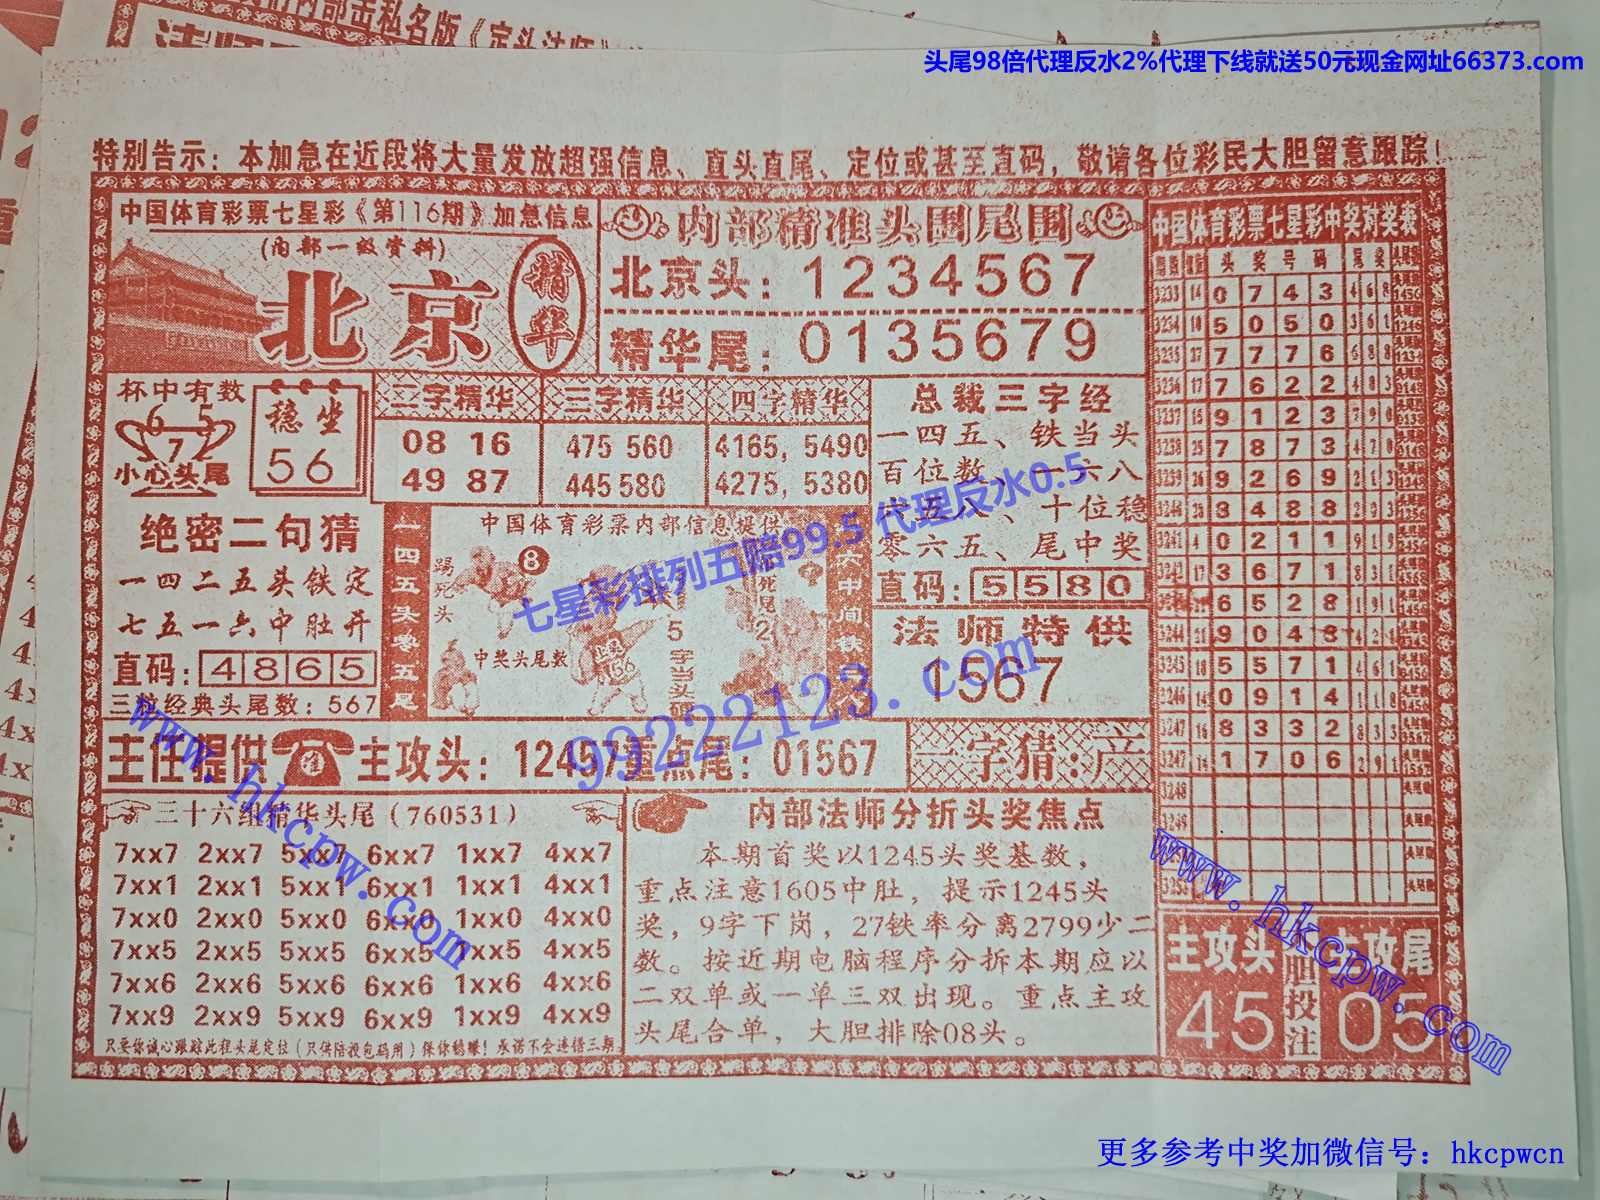 头尾98倍代理反水2%代理下线就送50元现金网址66373.com
特别告示：本加急在近段将大量发放超强信息、直头直尾、定位或甚至直码，敬请各位彩民大胆留意跟踪！
中国体育彩票七星彩《第116期》加急信息
(内部一级资料)
北京
精华
内部精准头围尾围
北京头：1234567
精华尾：0135679
杯中有数
6 5
7
小心头尾
稳坐
56
二字精华
08 16
49 87
三字精华
475 560
445 580
四字精华
4165, 5490
4275, 5380
总裁三字经
一四五、铁当头
百位数、一六八
六五八、十位稳
零六五、尾中奖
直码：5580
绝密二句猜
一四二五头铁定
七五一六中肚开
直码：4865
三粒经典头尾数：567
一四五头零五尾
中国体育彩票内部信息提供
踢死头
8
中奖头尾数
56
5字当头码
死尾2
法师特供
1567
主任提供
主攻头：12457重点尾：01567
一字猜：产
三十六组精华头尾(760531)
7xx7 2xx7 5xx7 6xx7 1xx7 4xx7
7xx1 2xx1 5xx1 6xx1 1xx1 4xx1
7xx0 2xx0 5xx0 6xx0 1xx0 4xx0
7xx5 2xx5 5xx5 6xx5 1xx5 4xx5
7xx6 2xx6 5xx6 6xx6 1xx6 4xx6
7xx9 2xx9 5xx9 6xx9 1xx9 4xx9
只要你诚心跟踪此程头尾定位(只供陪投包码用)保你稳赚！承诺不会连错三期。
内部法师分折头奖焦点
本期首奖以1245头奖基数，
重点注意1605中肚，提示1245头
奖，9字下岗，27铁率分离2799少二
数。按近期电脑程序分拆本期应以
二双单或一单三双出现。重点主攻
头尾合单，大胆排除08头。
中国体育彩票七星彩中奖对奖表
头奖号码 尾奖
3233 14 0 7 4 3 4 6 8
3234 10 5 0 5 0 3 6 1
3235 27 7 7 7 6 6 8 8
3236 17 7 6 2 2 4 8 3
3237 15 9 1 2 3 7 9 0
3238 25 7 8 7 3 4 7 0
3239 26 9 2 6 9 2 1 3
3240 3 4 8 8 2 9 3
3241 4 0 2 1 1 9 1 9
3242 17 3 6 7 1
6 5 2 8 1 9 1
3244 21 9 0 4 8 4 2
3245 18 5 5 7 1 4 6 1
3246 14 0 9 1 4
3247 16 8 3 3 2 8 3 3
3247 14 1 7 0 6 2 9 1
3248
3249
主攻头
45
胆投注
主攻尾
05
七星彩排列五赔99.5 代理反水0.5
99222123.com
www.hkcpw.com
www.hkcpw.com
更多参考中奖加微信号：hkcpwcn